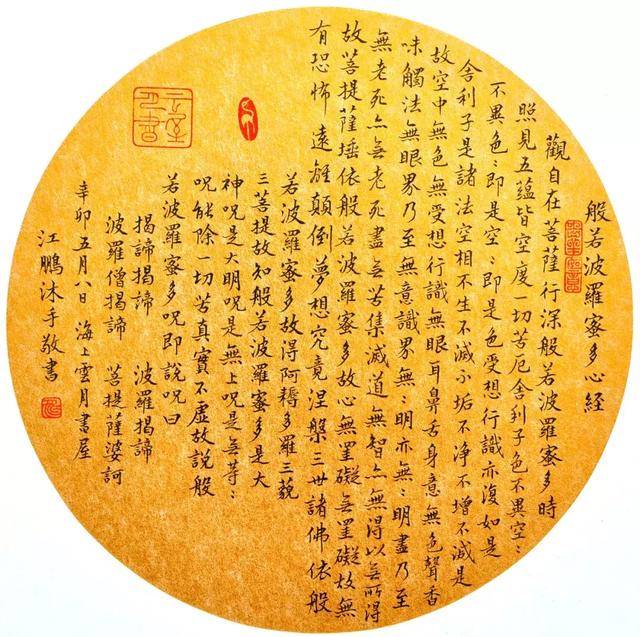 般若波羅蜜多心経
觀自在菩薩行深般若波羅蜜多時
照見五蘊皆空度一切苦厄舍利子色不異空〻
不異色〻即是空〻即是色受想行識亦復如是
舍利子是諸法空相不生不滅不垢不净不增不減是
故空中無色無受想行識無眼耳鼻舌身意無色聲香
味觸法無眼界乃至無意識界無〻明亦無〻明盡乃至
無老死亦无老死盡无苦集滅道無智亦無得以无所得
故菩提薩埵依般若波羅蜜多故心無罣礙无罣礙故無
有恐怖遠離顛倒夢想究竟涅槃三世諸佛依般
若波羅蜜多故得阿耨多羅三藐
三菩提故知般若波羅蜜多是大
神呪是大明呪是無上呪是无等〻
呪能除一切苦真實不虛故説般
若波羅蜜多呪即説呪曰
揭諦揭諦 波羅揭諦
波羅僧揭諦 菩提薩婆訶
辛卯五月八日 海上雲月書屋
江鵬沐手敬書